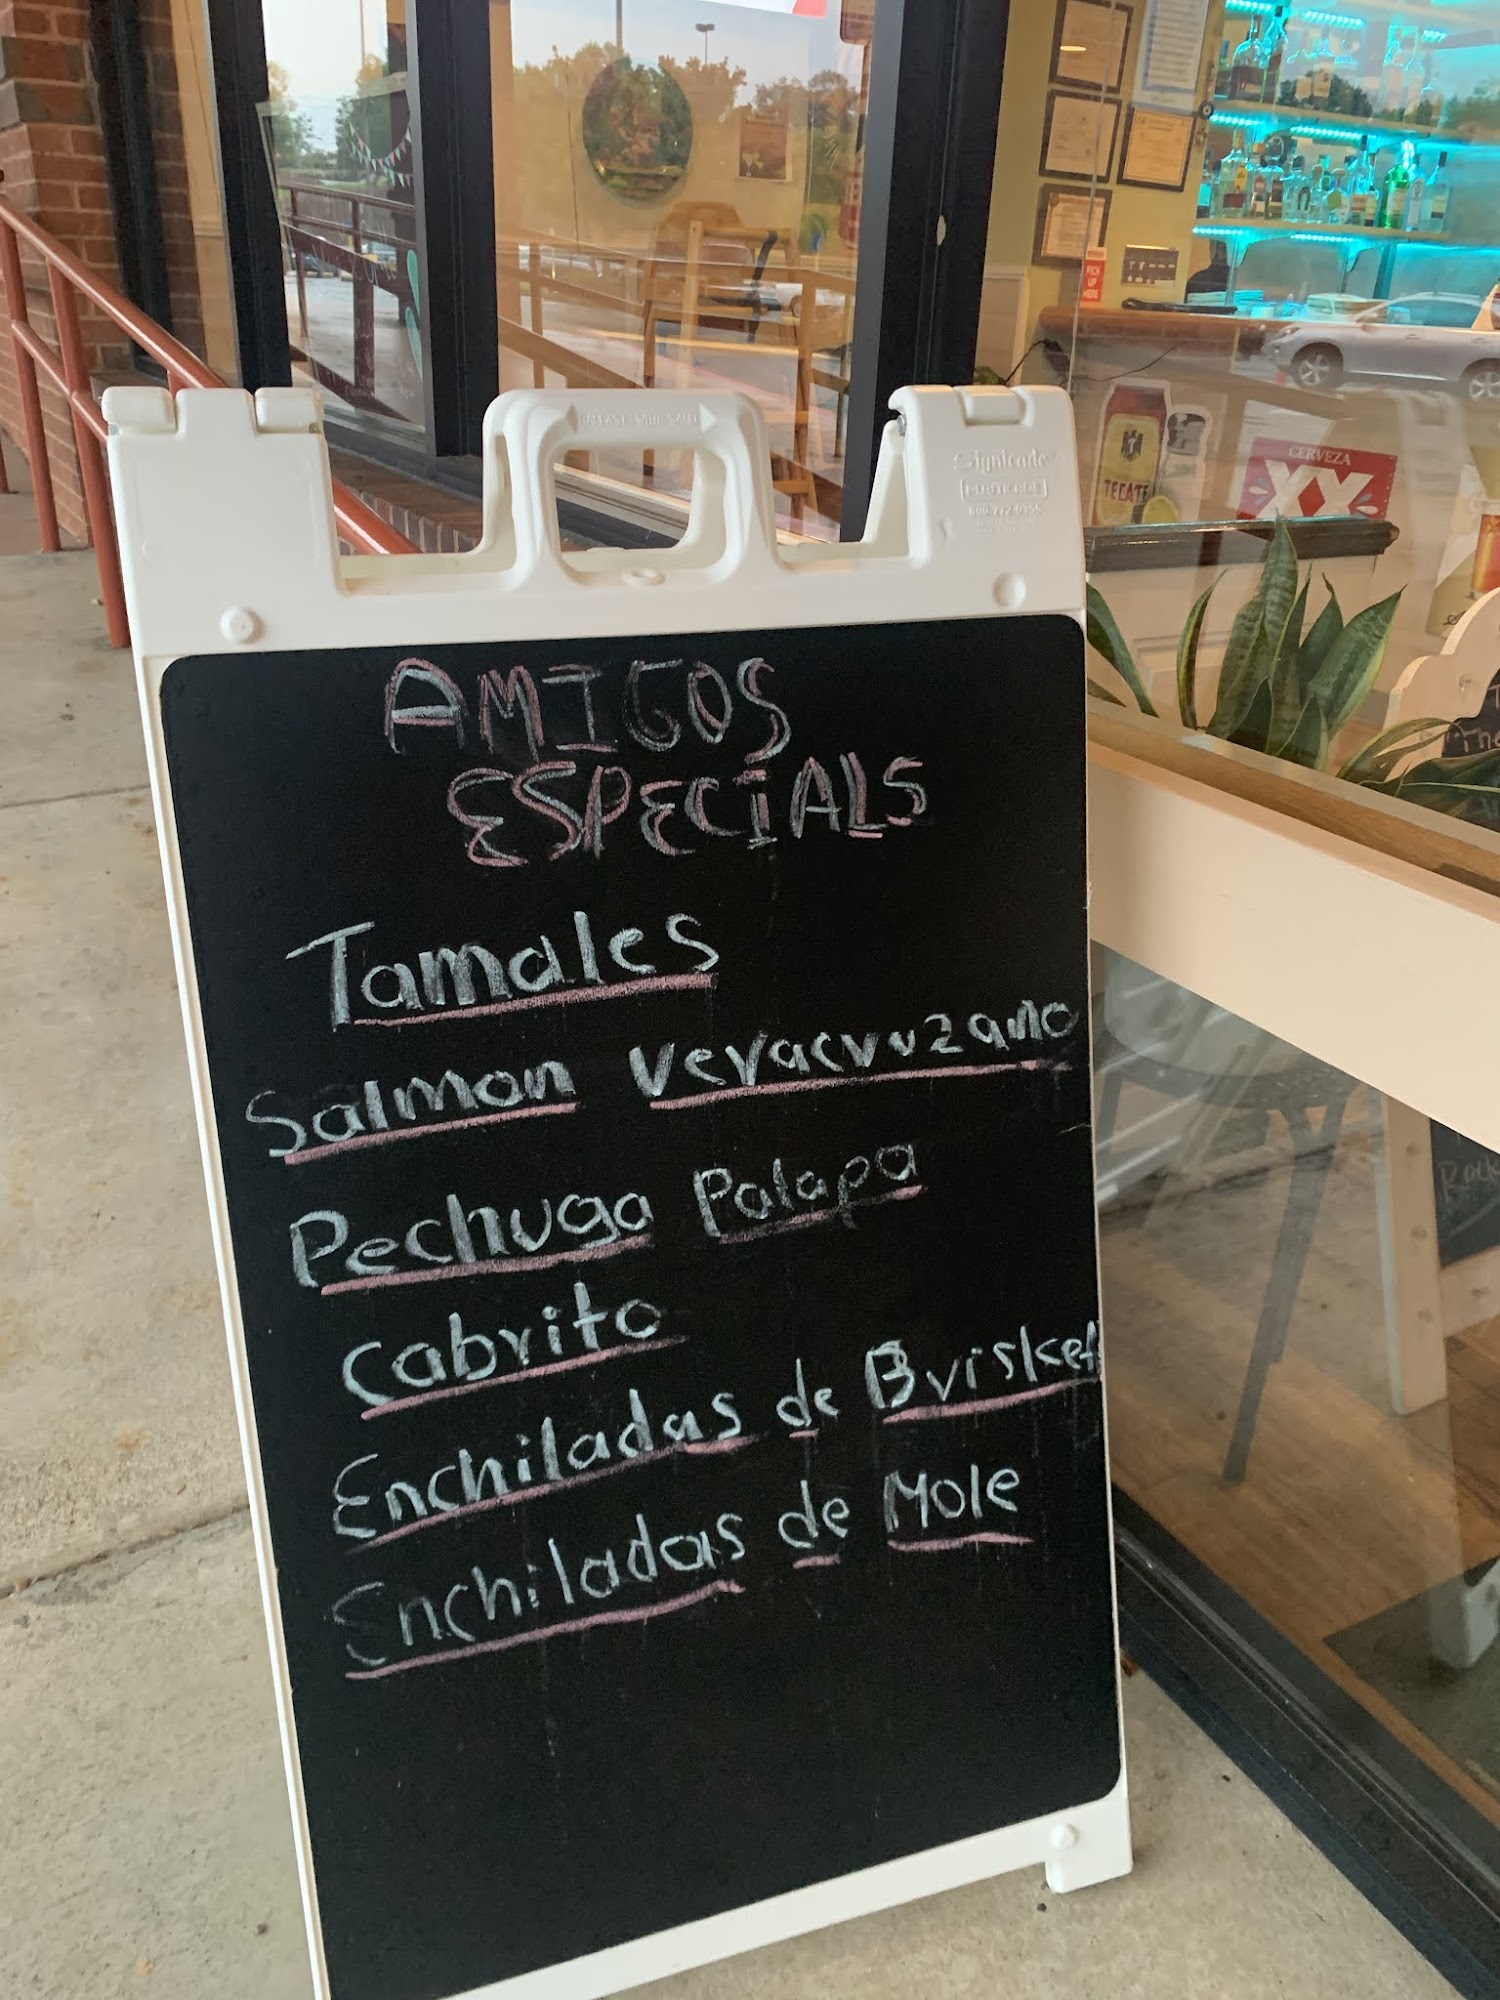 PICK
UP
HERE
TECATE
CERVEZA
XX
Signicade
800-772-0355
AMIGOS
ESPECIALS
Tamales
Salmon Veracruzano
Pechuga Palapa
Cabrito
Enchiladas de Brisket
Enchiladas de Mole